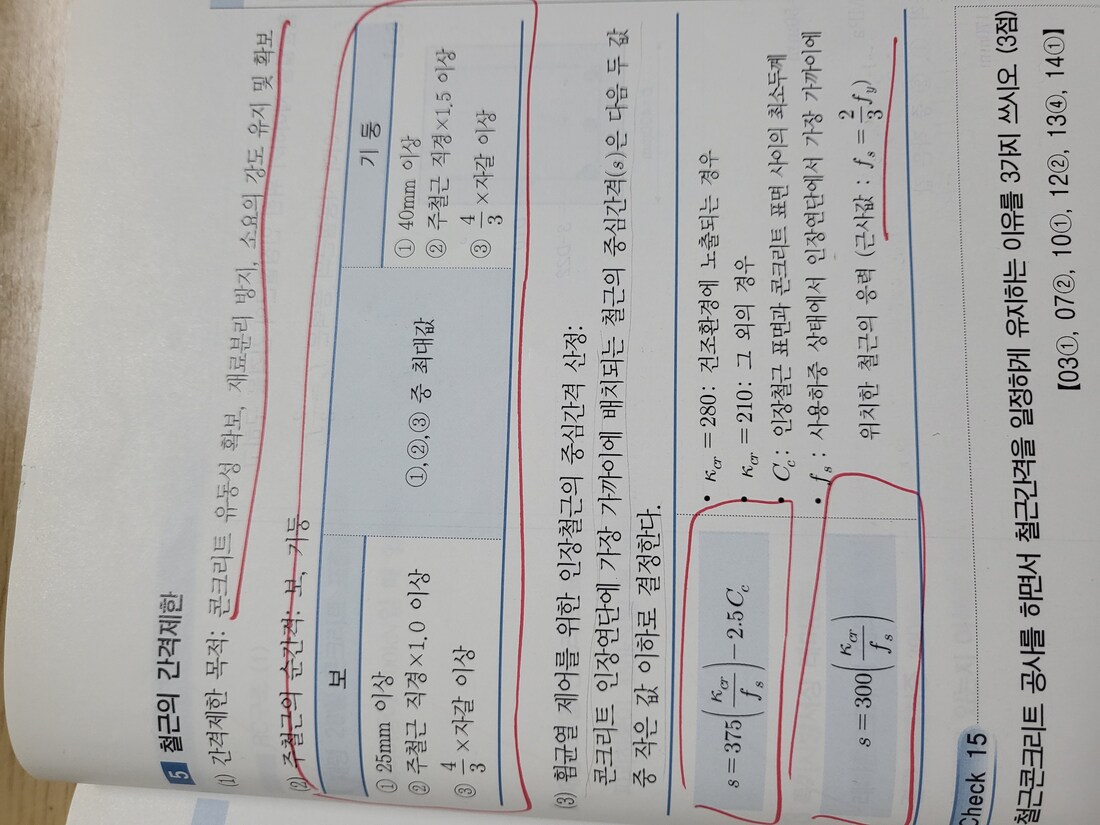 5 철근의 간격제한
(1) 간격제한 목적: 콘크리트 유동성 확보, 재료분리 방지, 소요의 강도 유지 및 확보
(2) 주철근의 순간격: 보, 기둥
보
기 둥
① 25mm 이상
② 주철근 직경×1.0 이상
③ 4/3 ×자갈 이상
①,②,③ 중 최대값
① 40mm 이상
② 주철근 직경×1.5 이상
③ 4/3 ×자갈 이상
(3) 휨균열 제어를 위한 인장철근의 중심간격 산정:
콘크리트 인장연단에 가장 가까이에 배치되는 철근의 중심간격(s)은 다음 두 값
중 작은 값 이하로 결정한다.
s = 375(κcr/fs) − 2.5Cc
s = 300(κcr/fs)
• κcr = 280: 건조환경에 노출되는 경우
• κcr = 210: 그 외의 경우
• Cc : 인장철근 표면과 콘크리트 표면 사이의 최소두께
• fs : 사용하중 상태에서 인장연단에서 가장 가까이에
위치한 철근의 응력 (근사값 : fs = 2/3 fy)
Check 15
철근콘크리트 공사를 하면서 철근간격을 일정하게 유지하는 이유를 3가지 쓰시오 (3점)
【03①, 07②, 10①, 12②, 13④, 14①】